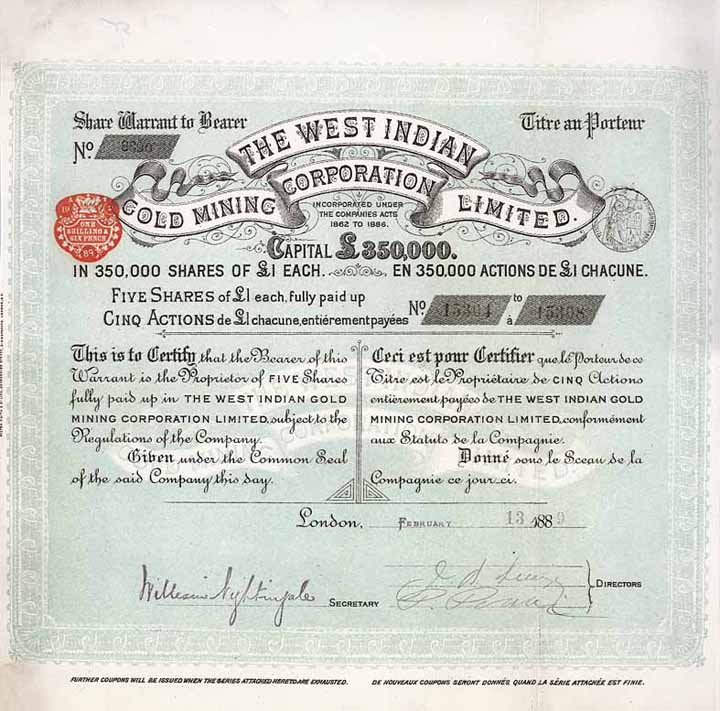 Share Warrant to Bearer
Titre au Porteur
No.
THE WEST INDIAN
GOLD MINING CORPORATION LIMITED.
INCORPORATED UNDER
THE COMPANIES ACTS
1862 TO 1886.
ONE
SHILLING &
SIX PENCE
CAPITAL £350,000.
IN 350,000 SHARES OF £1 EACH. EN 350,000 ACTIONS DE £1 CHACUNE.
FIVE SHARES of £1 each, fully paid up
CINQ ACTIONS de £1 chacune, entiérement payées
No 15304 to à 15308
This is to Certify that the Bearer of this
Warrant is the Proprietor of FIVE Shares
fully paid up in THE WEST INDIAN GOLD
MINING CORPORATION LIMITED, subject to the
Regulations of the Company.
Given under the Common Seal
of the said Company this day.
Ceci est pour Certifier que le Porteur de ce
Titre est le Propriétaire de CINQ Actions
entièrement payées de THE WEST INDIAN GOLD
MINING CORPORATION LIMITED, conformément
aux Statuts de la Compagnie.
Donné sous le Sceau de la
Compagnie ce jour-ci.
London, FEBRUARY 13 1889
William Nightingale
SECRETARY
DIRECTORS
FURTHER COUPONS WILL BE ISSUED WHEN THE SERIES ATTACHED HERETO ARE EXHAUSTED.
DE NOUVEAUX COUPONS SERONT DONNÉS, QUAND LA SÉRIE ATTACHÉE EST FINIE.